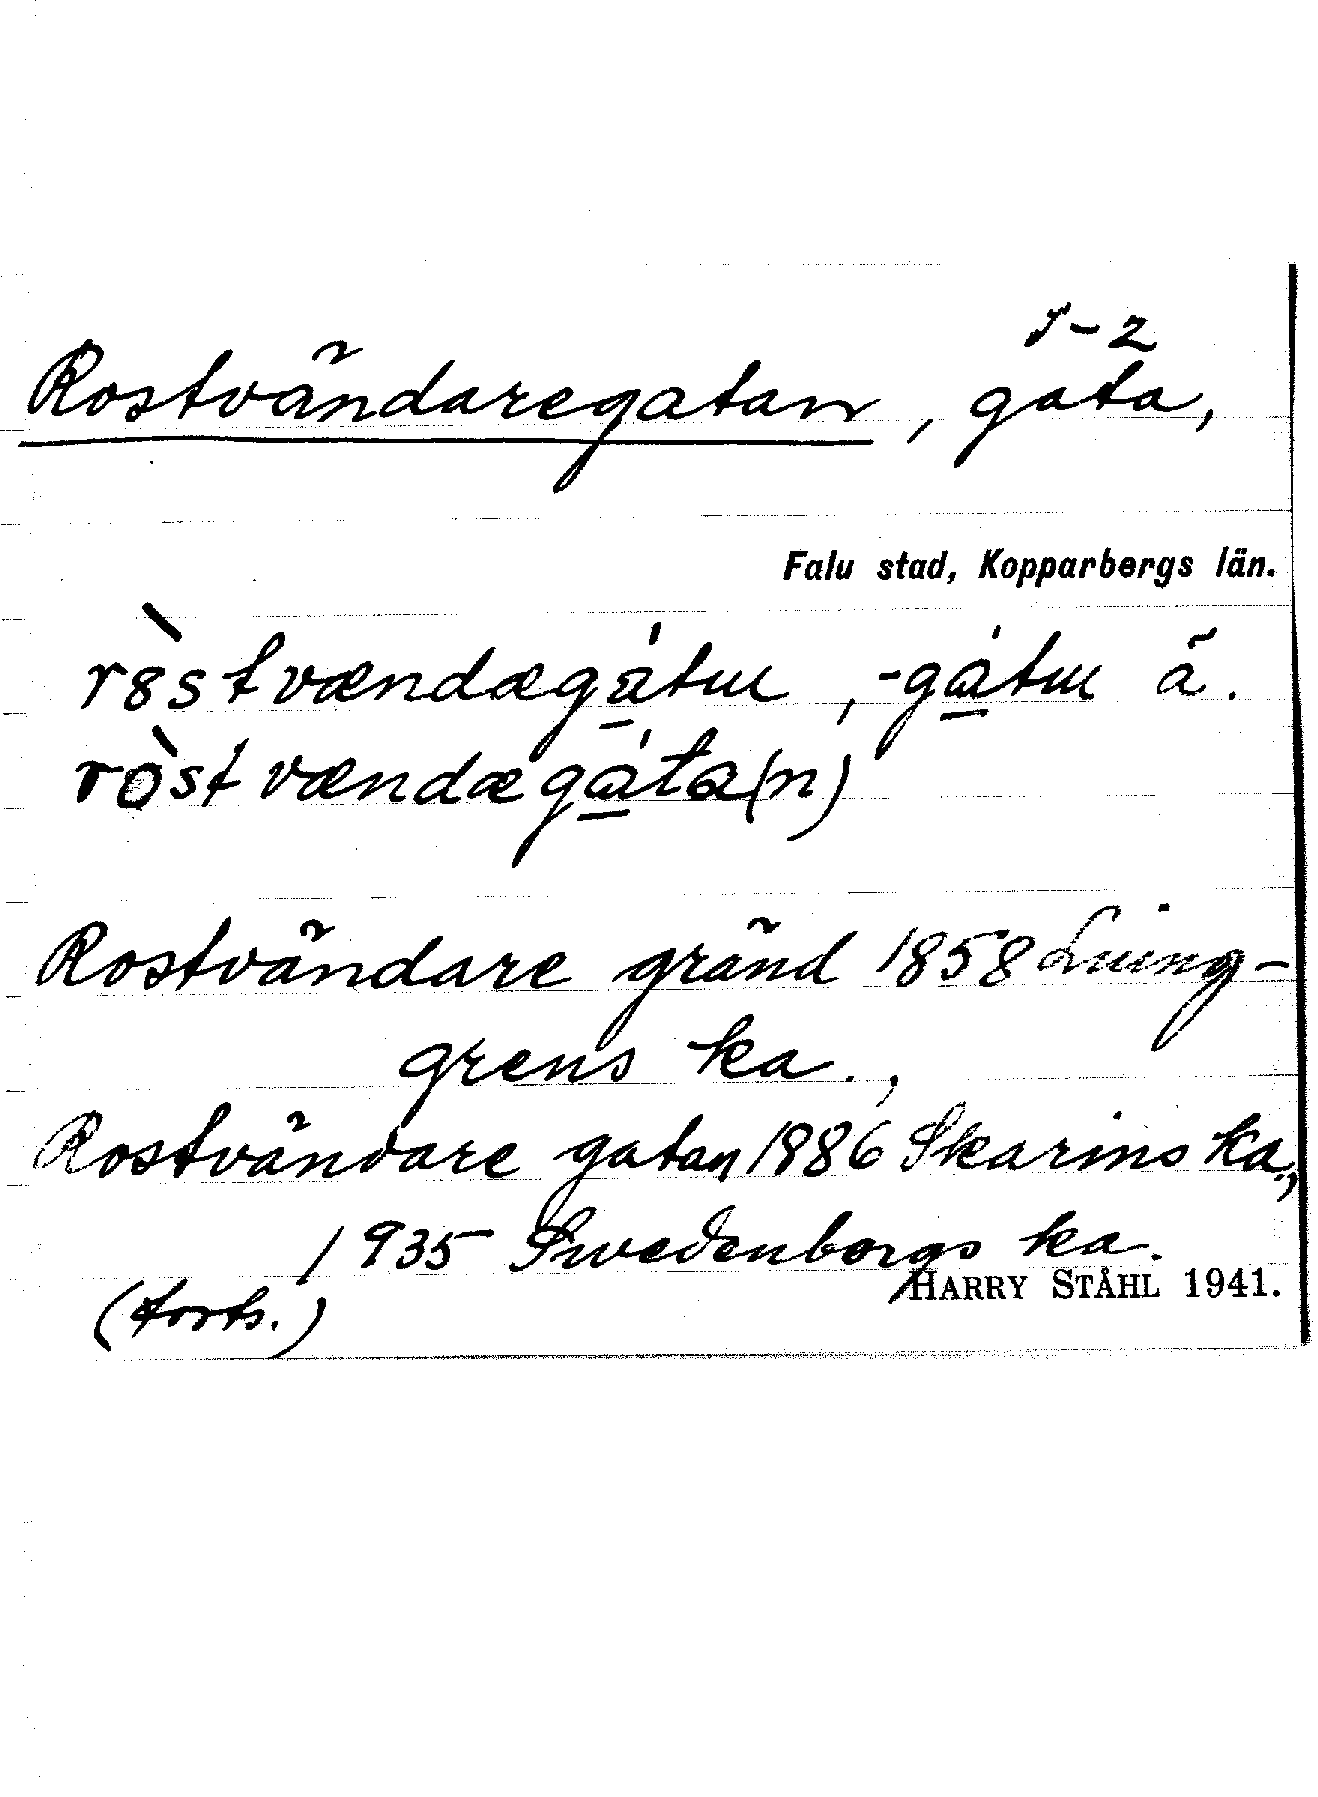 1-2
Rostvändaregatan, gata,
Falu stad, Kopparbergs län.
ròstvændægátu, -gátu ä.
ròstvændægáta(n)
Rostvändare gränd 1858 Ljung-
grens ka.,
Rostvändare gatan 1886 Skarins ka,
1935 Swedenborgs ka.
HARRY STÅHL 1941.
(forts.)